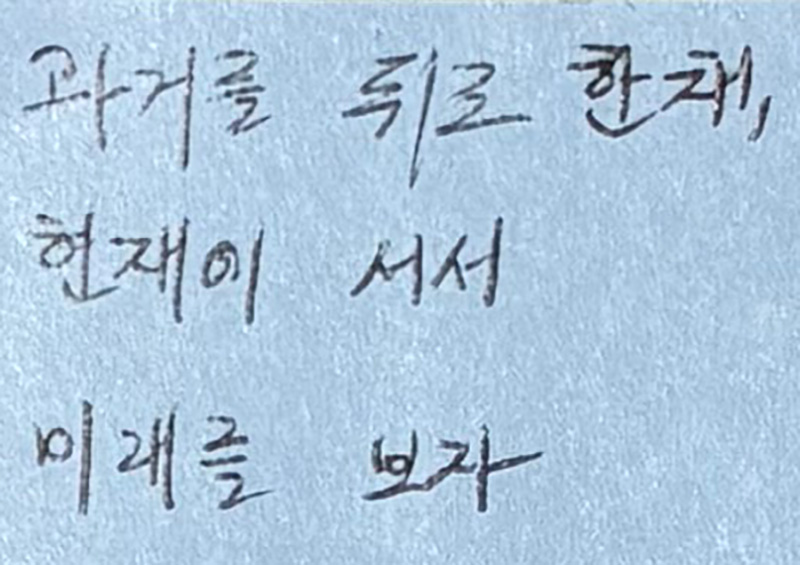 과거를 뒤로 한채,
현재에 서서
미래를 보자